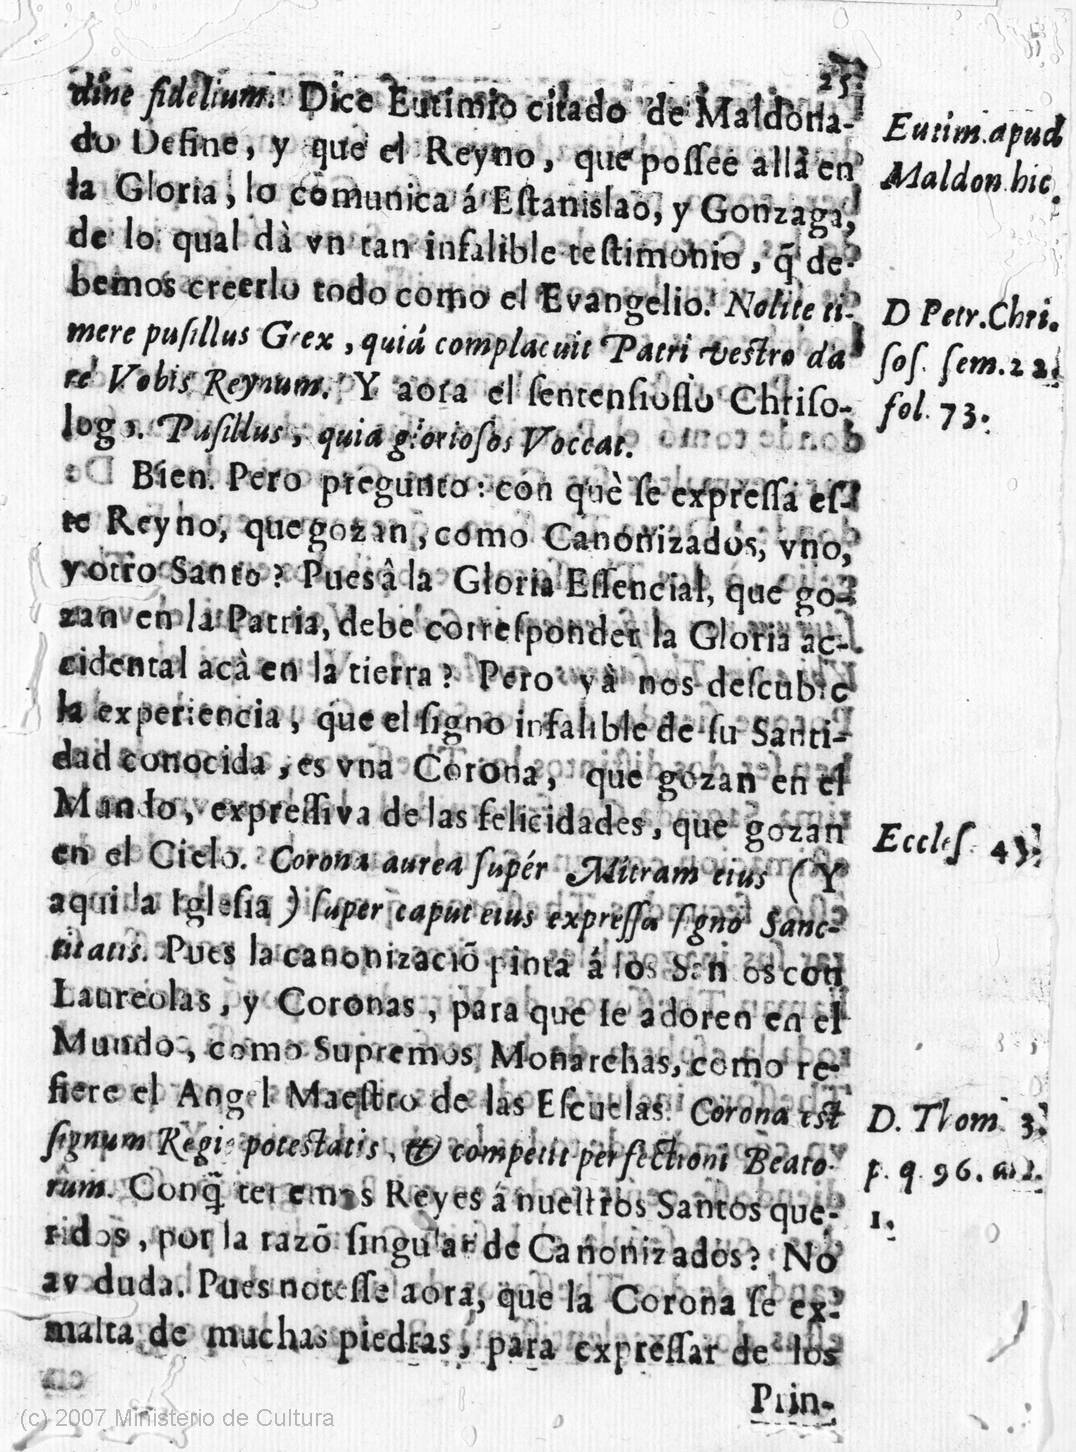 25.
dine fidelium. Dice Eutimio citado de Maldona-
do Define, y que el Reyno, que poſſee allà en
la Gloria, lo comunica á Eſtanislao, y Gonzaga,
de lo qual dà vn tan infalible teſtimonio, q̃ de-
bemos creerlo todo como el Evangelio. Nolite ti-
mere puſillus Grex, quiá complacuit Patri veſtro da
re Vobis Reynum. Y aora el ſentenſioſſo Chriſo-
logo. Puſillus, quia glorioſos Voccat.
Bien. Pero pregunto: con què ſe expreſſa eſ-
te Reyno, que gozan, como Canonizados, vno,
y otro Santo? Pues â la Gloria Eſſencial, que go-
zan en la Patria, debe correſponder la Gloria ac-
cidental acà en la tierra? Pero yà nos deſcubre
la experiencia, que el ſigno infalible de ſu Santi-
dad conocida, es vna Corona, que gozan en el
Mundo, expreſſiva de las felicidades, que gozan
en el Cielo. Corona aurea ſupér Mitram eius (Y
aqui la Igleſia) ſuper caput eius expreſſa ſigno Sanc-
titatis. Pues la canonizaciõ pinta á los Santos con
Laureolas, y Coronas, para que ſe adoren en el
Mundo, como Supremos Monarchas, como re-
fiere el Angel Maeſtro de las Eſcuelas. Corona eſt
ſignum Regie poteſtatis, & competit perfectioni Beato-
rum. Conq̃ teremos Reyes á nueſtros Santos que-
ridos, por la razõ ſingular de Canonizados? No
ay duda. Pues noteſſe aora, que la Corona ſe ex-
malta de muchas piedras, para expreſſar de los
Prin-
Eutim. apud
Maldon. hic.
D Petr. Chri.
ſoſ. ſem. 22.
fol. 73.
Eccleſ. 45.
D. Thom. 3.
p. q. 96. art.
1.
(c) 2007 Ministerio de Cultura